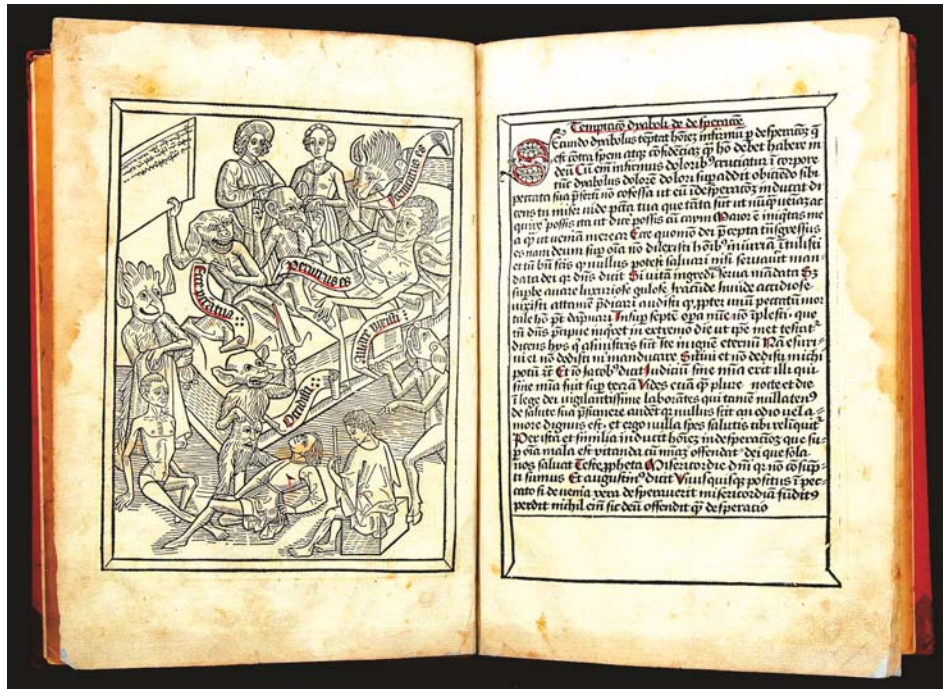 Fornicatus es
Periurus es
Ecce peccata tua
Auare vixisti
Occidisti
Temptacō dyaboli de desperacōe
Secundo dyabolus tēptat hoīez infirmū p desperacōz q̄
est cōtra spem atq̨ cōfidēciaz q̄ hō debet habere in
deū Cū em̄ infirmus dolorib9 cruciatur ī corpore
tūc dyabolus dolorē dolori sup addit obiciēdo sibi
peccata sua p̄sertī nō cōfessa ut eū ī desperacōz inducat di
cens tu miser vide pctā tua que tāta sūt ut nūq̄ veniaz ac
quire possis ita ut dicē possis cū caym Maior ē iniq̄tas mea
q̄ ut veniam merear Ecce quomō dei p̄cepta trāsgressus
es nam deum sup oīa nō dilexisti hoīb9 iniuriā ītulisti
et tn̄ bn̄ scis q̄ nullus potest saluari nisi seruauerit man
data dei q̄ dn̄s dicit Si vitā ingredi serua mādata Sz
supbe auare luxuriose gulose iracūde īuide accidiose
vixisti attamē p̄dicari audisti q̄ ꝓpter unū peccatū mor
tale hō pt dāpnari Insup septē opa mīe nō īplesti que
tn̄ dn̄s p̄cipue inq̄ret in extremo die ut ipe met testat̄
dicens hys q̄ a sinistris sūt Ite in ignē eternū Nā esuri
ui et nō dedistī m̄ manducare Sitiui et nō dedistī michi
potū &c Et iō Iacob9 dicit Iudiciū sine mīa erit illi qui
sine mīa fuit sup terrā Vides eciā q̄ plures nocte et die
ī lege dei vigilantissime laborantes qui tamē nullaten9
de salute sua p̄sumere audēt q̄ nullus scit an odio vel a
more dignus est et ergo nulla spes salutis tibi relīquit̄
Per ista et similia inducit hoīez in desperacōz que su
p oīa mala est vitanda cū mīaz offendat dei que sola
nos saluat Teste ꝓpheta Misericordie dn̄i q̄ nō cōsūp
ti sumus Et augustin9 dicit Vnusquisq̨ positus ī pec
cato si de venia vera desperauerit misericordiā fūdit9
perdit nichil em̄ sic deū offendit q̄ desperacio